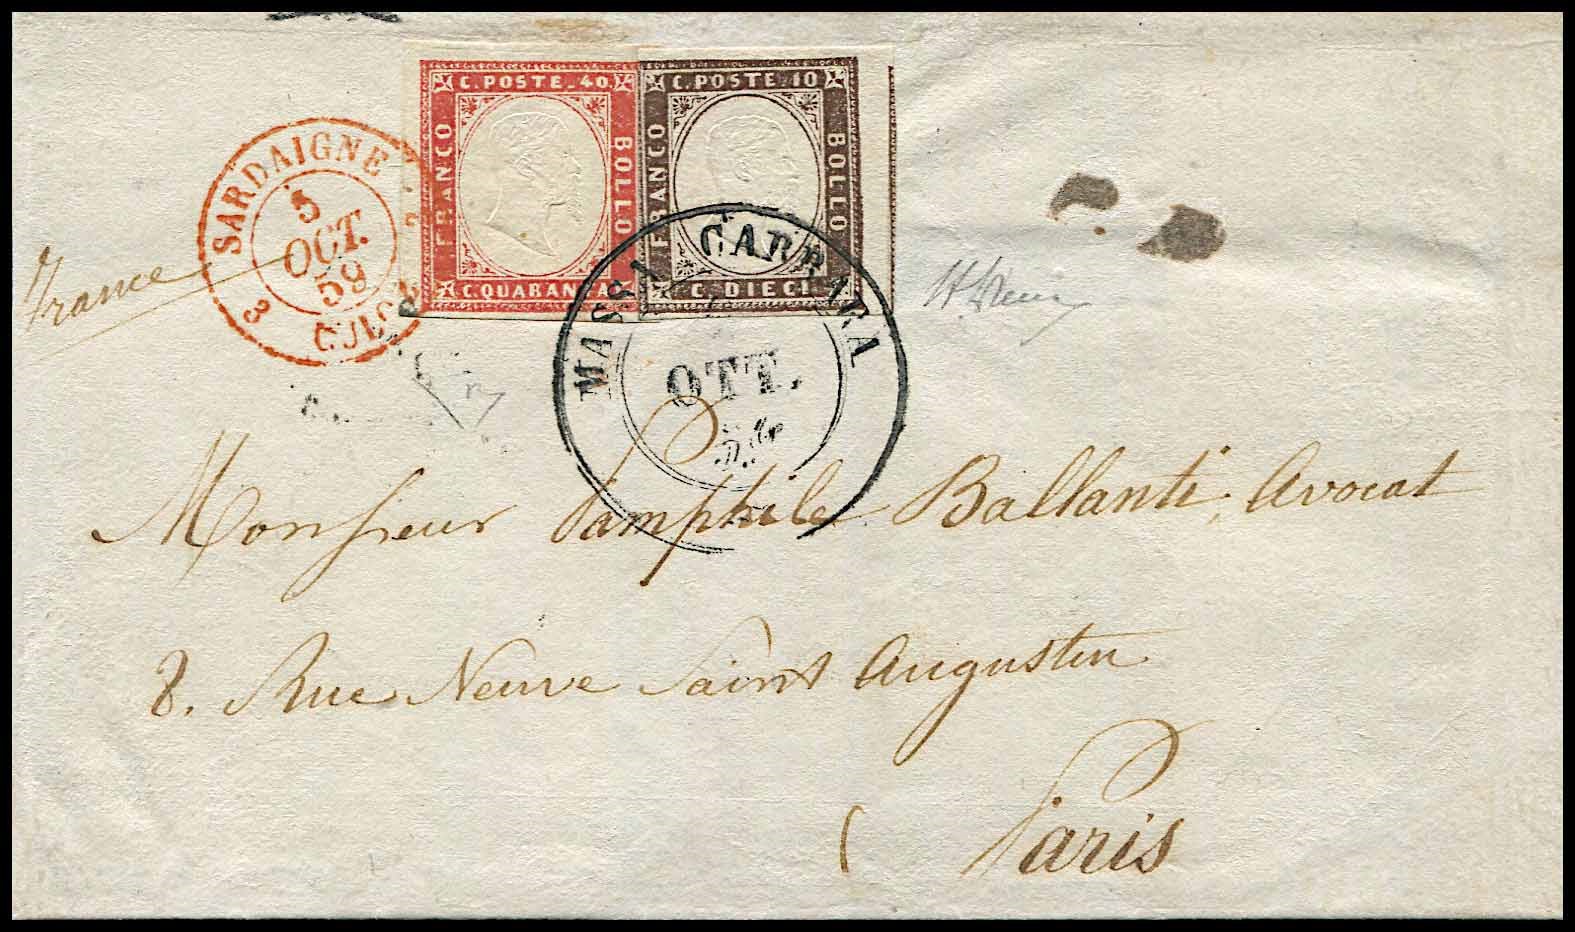 C. POSTE. 40.
FRANCO
BOLLO
C. QUARANTA
C. POSTE 10
FRANCO
BOLLO
C. DIECI
SARDAIGNE
5
OCT.
59
3
CULOZ
3
MASSA CARRARA
OTT.
59
France
Monsieur Pamphile Ballanti, Avocat
8. Rue Neuve Saint Augustin
Paris